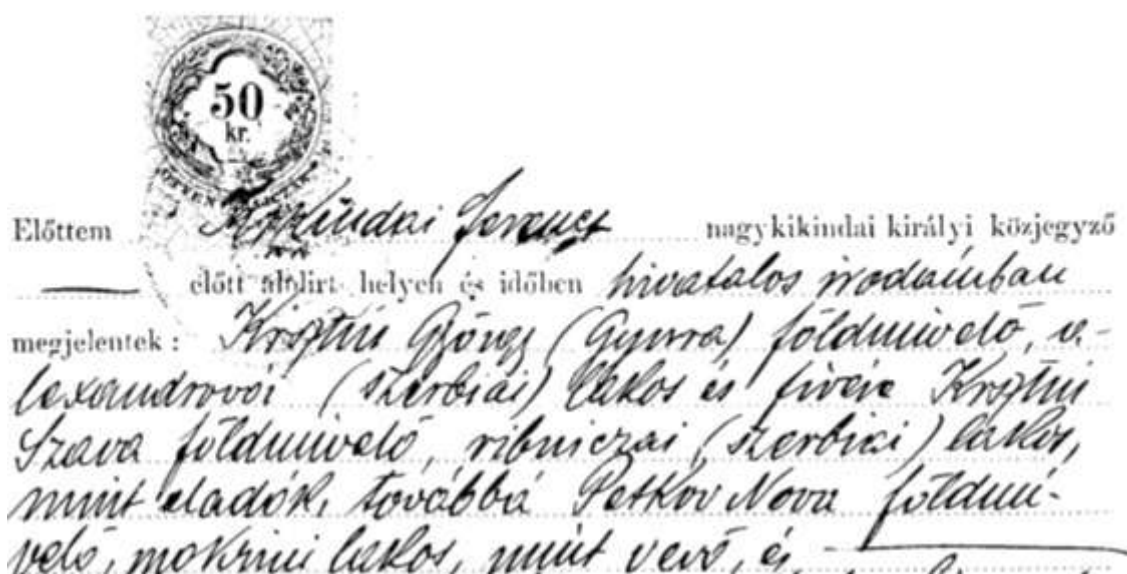 50
kr.
ÖTVEN KRAJCZÁR
Előttem Ferencz nagykikindai királyi közjegyző
előtt alulirt helyen és időben hivatalos irodámban
megjelentek: Krsztin György (Gyurra) földmivelő, a-
lexandrovói (szerbiai) lakos és fivére Krsztin
Szava földmivelő, ribniczai (szerbiai) lakos,
mint eladók, továbbá Petkov Nova földmi-
velő, mokrini lakos, mint vevő, és